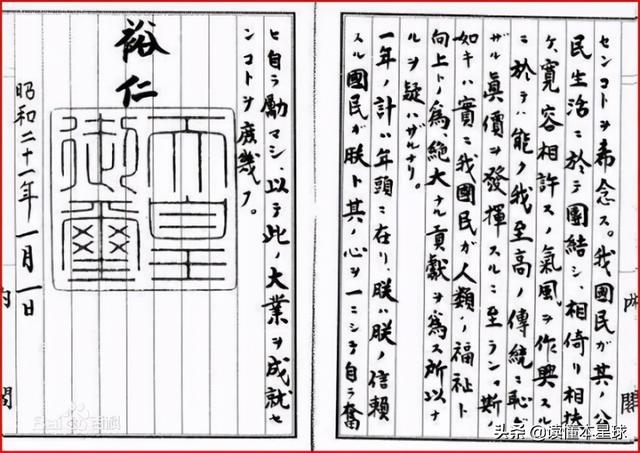 センコトヲ希念ス。我國民ガ其ノ公
民生活ニ於テ團結シ、相倚リ相扶
ケ、寛容相許スノ氣風ヲ作興スル
ニ於テハ能ク我至高ノ傳統ニ恥ヂ
ザル眞價ヲ發揮スルニ至ラン。斯ノ
如キハ實ニ我國民ガ人類ノ福祉ト
向上トノ爲、絶大ナル貢獻ヲ爲ス所以ナ
ルヲ疑ハザルナリ。
一年ノ計ハ年頭ニ在リ、朕ハ朕ノ信賴
スル國民ガ朕ト其ノ心ヲ一ニシテ自ラ奮
ヒ自ラ勵マシ、以テ此ノ大業ヲ成就セ
ンコトヲ庶幾フ。
裕仁
天皇
御璽
昭和二十一年一月一日
内閣
Baidu百科
头条 @读懂本星球